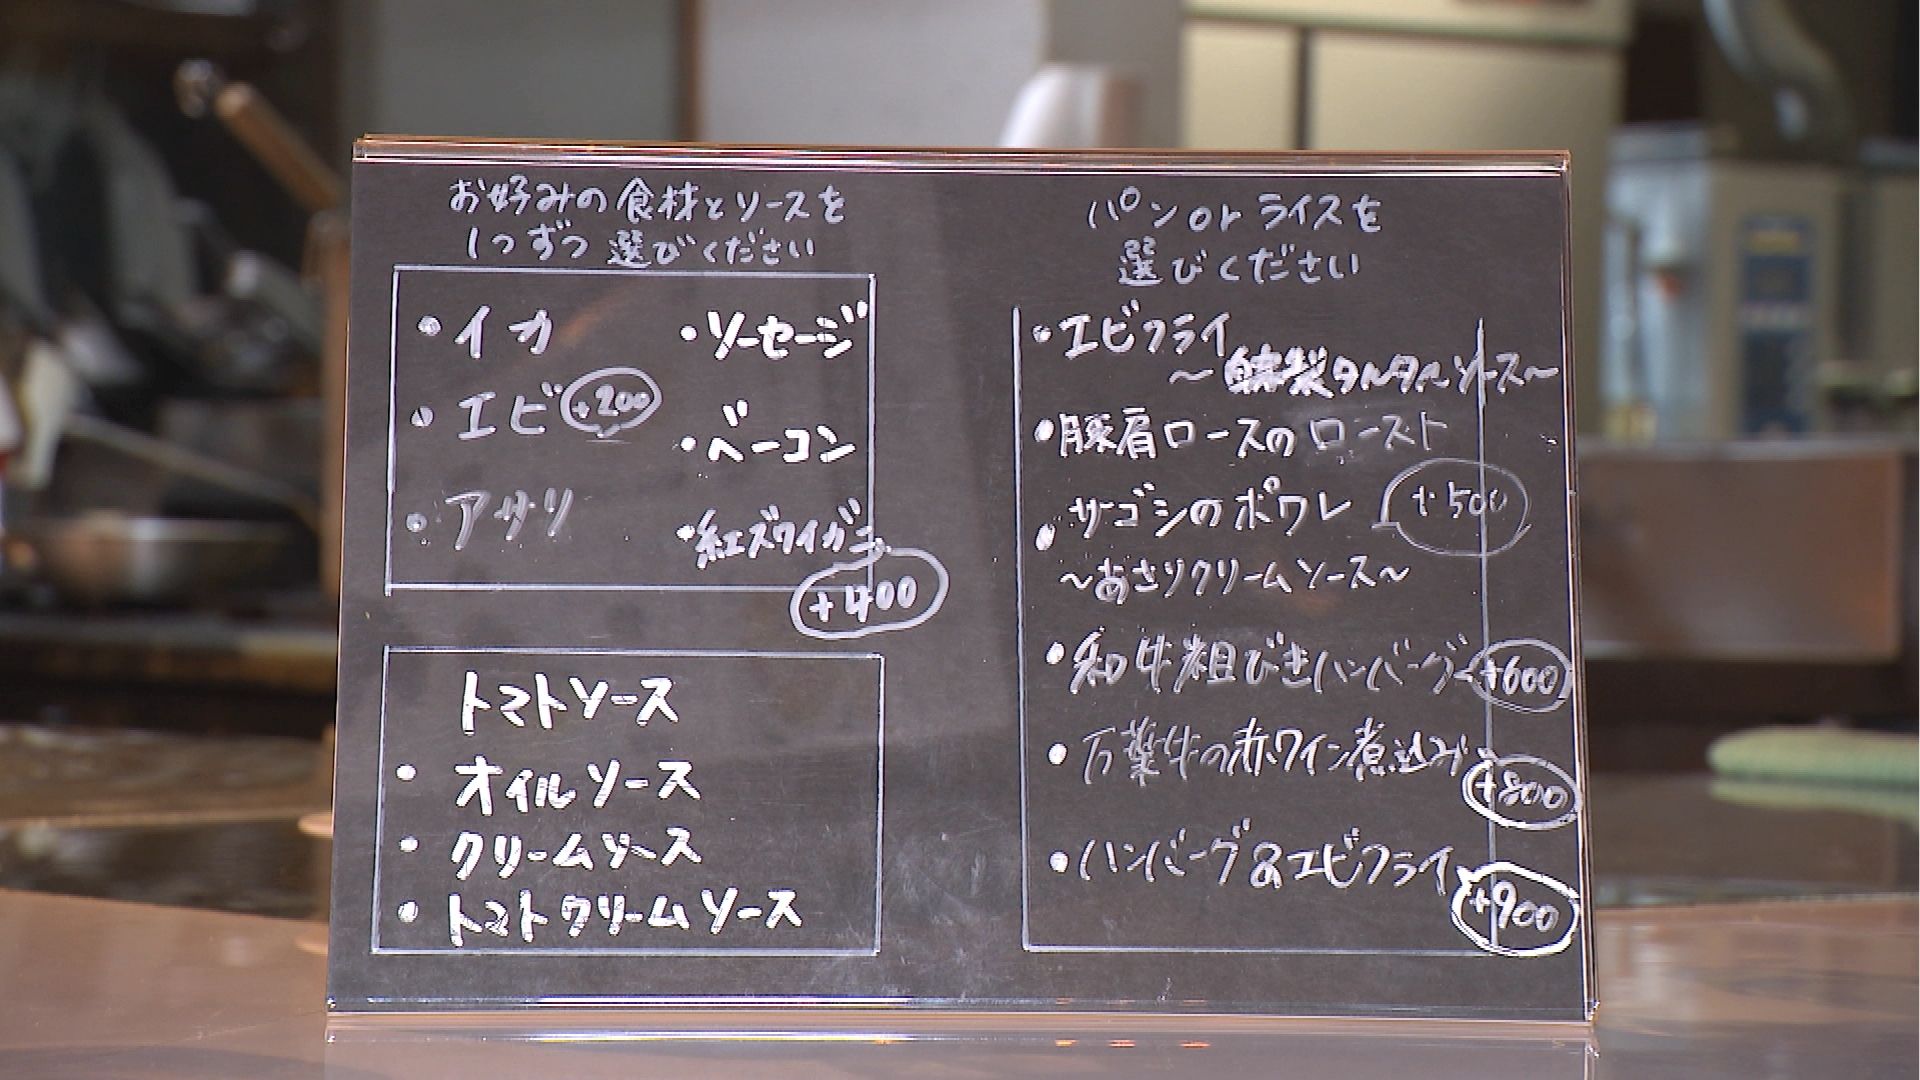 お好みの食材とソースを
1つずつ選びください
・イカ
・エビ +200
・アサリ
・ソーセージ
・ベーコン
・紅ズワイガニ
+400
トマトソース
・オイルソース
・クリームソース
・トマトクリームソース
パンorライスを
選びください
・エビフライ
～燻製タルタルソース～
・豚肩ロースのロースト
・サゴシのポワレ +500
～あさりクリームソース～
・和牛粗びきハンバーグ +600
・万葉牛の赤ワイン煮込み +800
・ハンバーグ&エビフライ +900